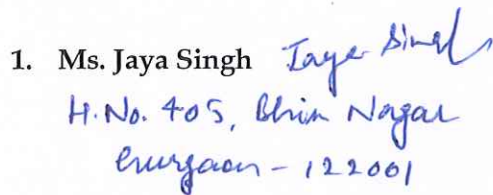 1. Ms. Jaya Singh Jaya Singh
H.No. 405, Bhim Nagar
Gurgaon - 122001